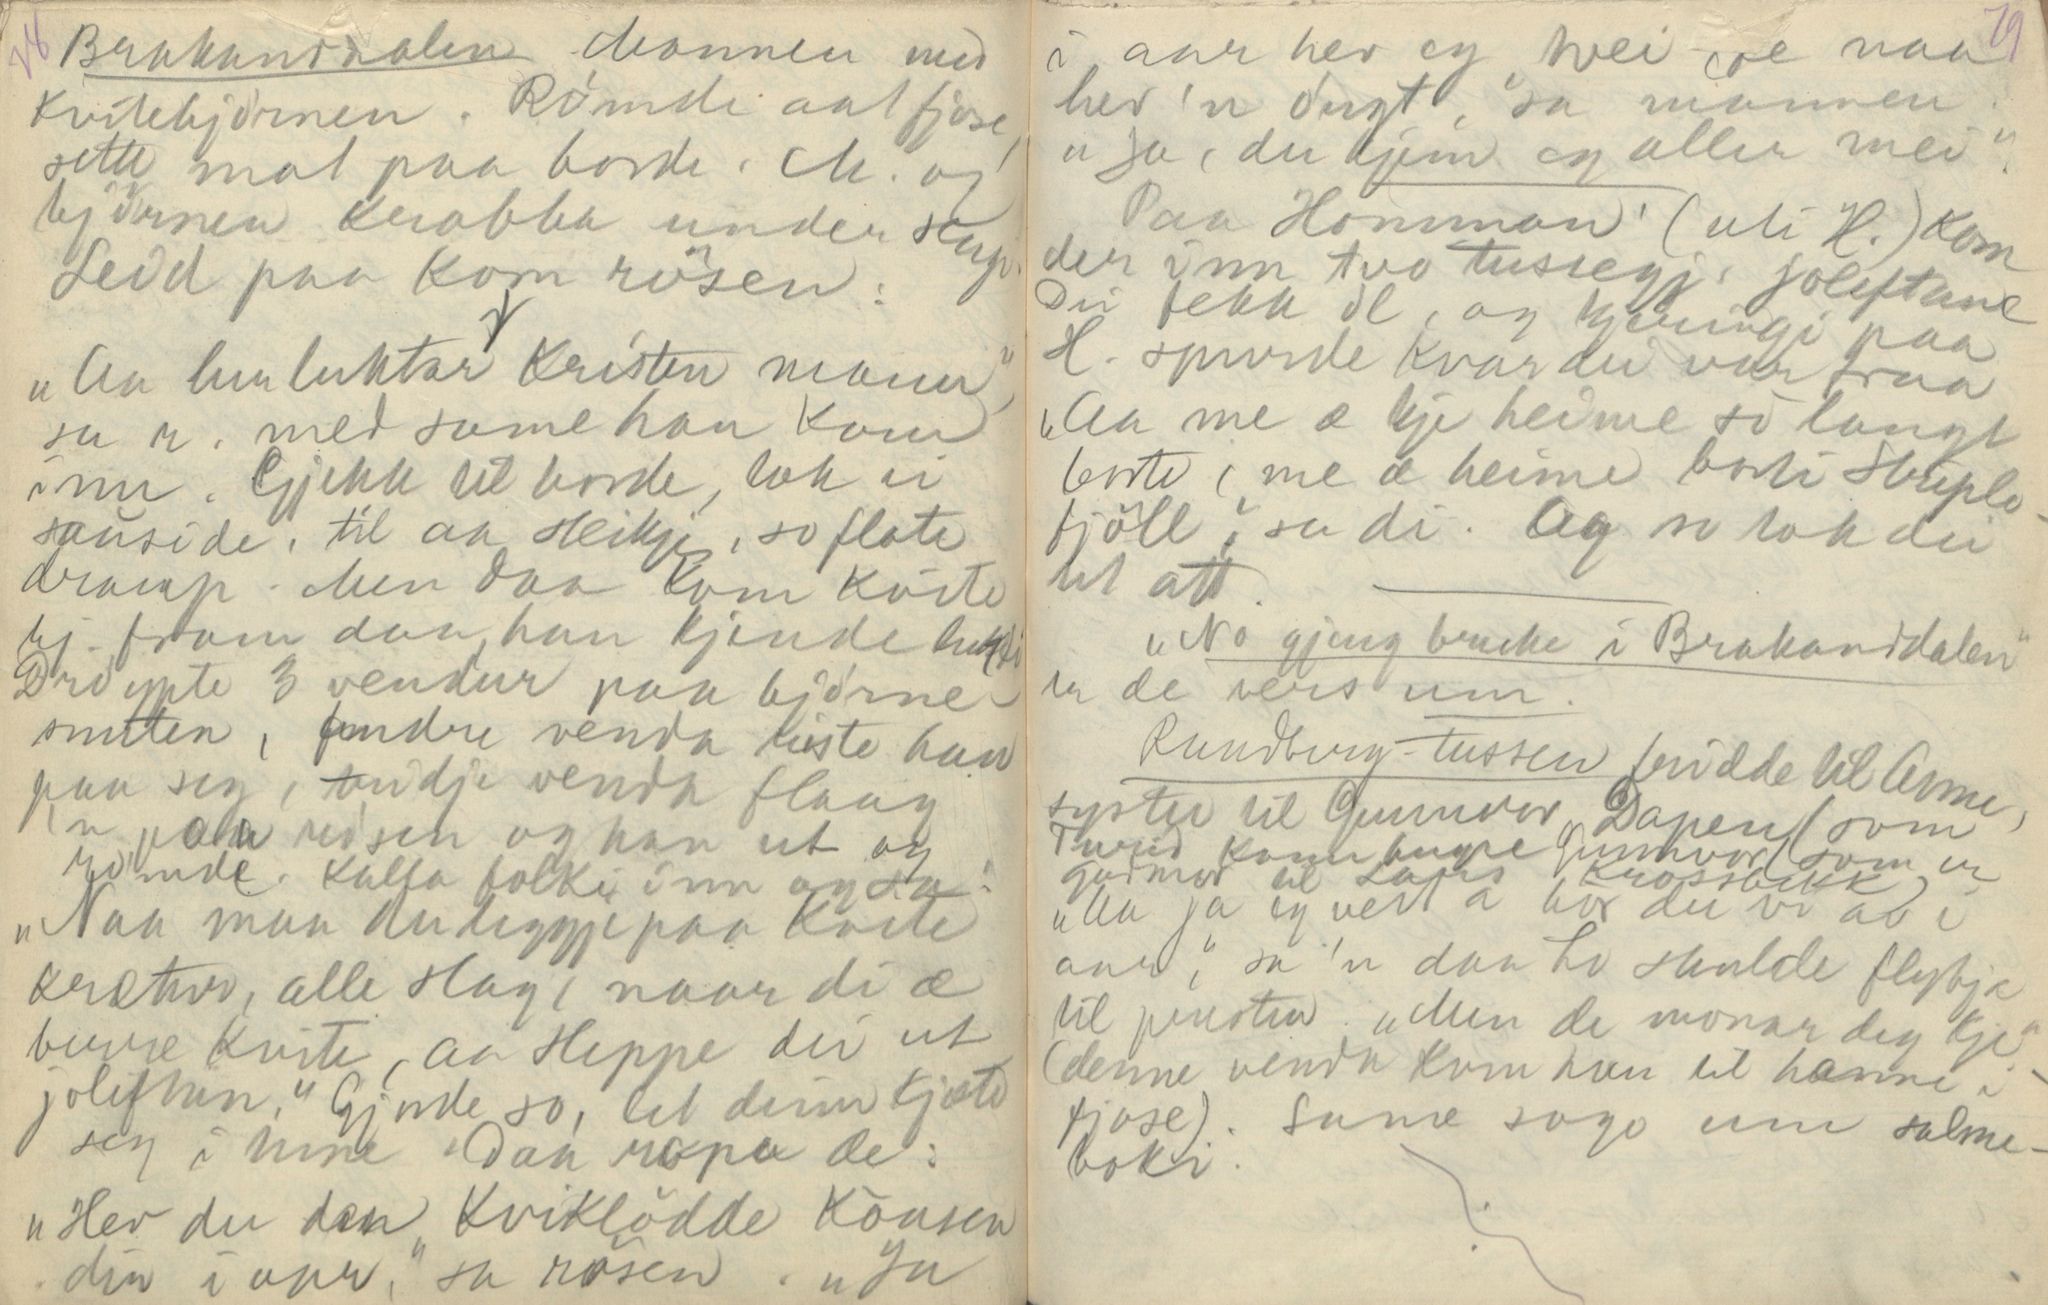 78
Brakanddalen Mannen med
kvitebjörnen. Römde aat fjöse,
sette mat paa borde. M. og
björnen krabba under
Leid paa kom rösen:
"Aa hu luktar kristen mann",
sa r. med same han kom
inn. Gjekk til borde, tok ei
sauside, til aa steikje, so flote
draup. Men daa kom kvite
bj. fram daa han kjende
Dröypte 3 vendur paa björne-
snuten, fyndre venda riste han
paa seg, tridje venda flaug
'n paa rösen og han ut og
römde. Kalla folki inn og sa:
"Naa maa du leggje paa kvite
krætur, alle slag, naar di æ
berre kvite, aa sleppe dei ut
joleftan." Gjorde so, let deim kjöte
seg i tune. Daa ropa de:
"Hev du den kviklödde kausen
din i aar," sa rösen. "Ja
79
i aar hev eg tvei
hev 'n ungt," sa mannen.
"Ja, du kjem eg aller mei".
Paa Homman' (uti H.) kom
der inn tvo tussegj. joleftane
Dei fekk öl, og kjeringi paa
H. spurde kvar dei var fraa
"Aa me æ kje heime so langt
borte, me æ heime borti Skuple-
fjöll", sa di. Og so tok dei
ut att.
"No gjeng bruke i Brakanddalen"
er de vers um.
Rundberg-tussen fridde til Anne,
syster til Gunnvor Dapen (som
Turid Gunnvor) som er
gudmor til Lars Krossbekk
"Aa ja eg veit a kor du vi av i
aar," sa 'n daa ho skulde flytje
til presten. "Men de monar deg kje"
(denne venda kom han til hanne i
fjose). Same sogo um salme-
boki.